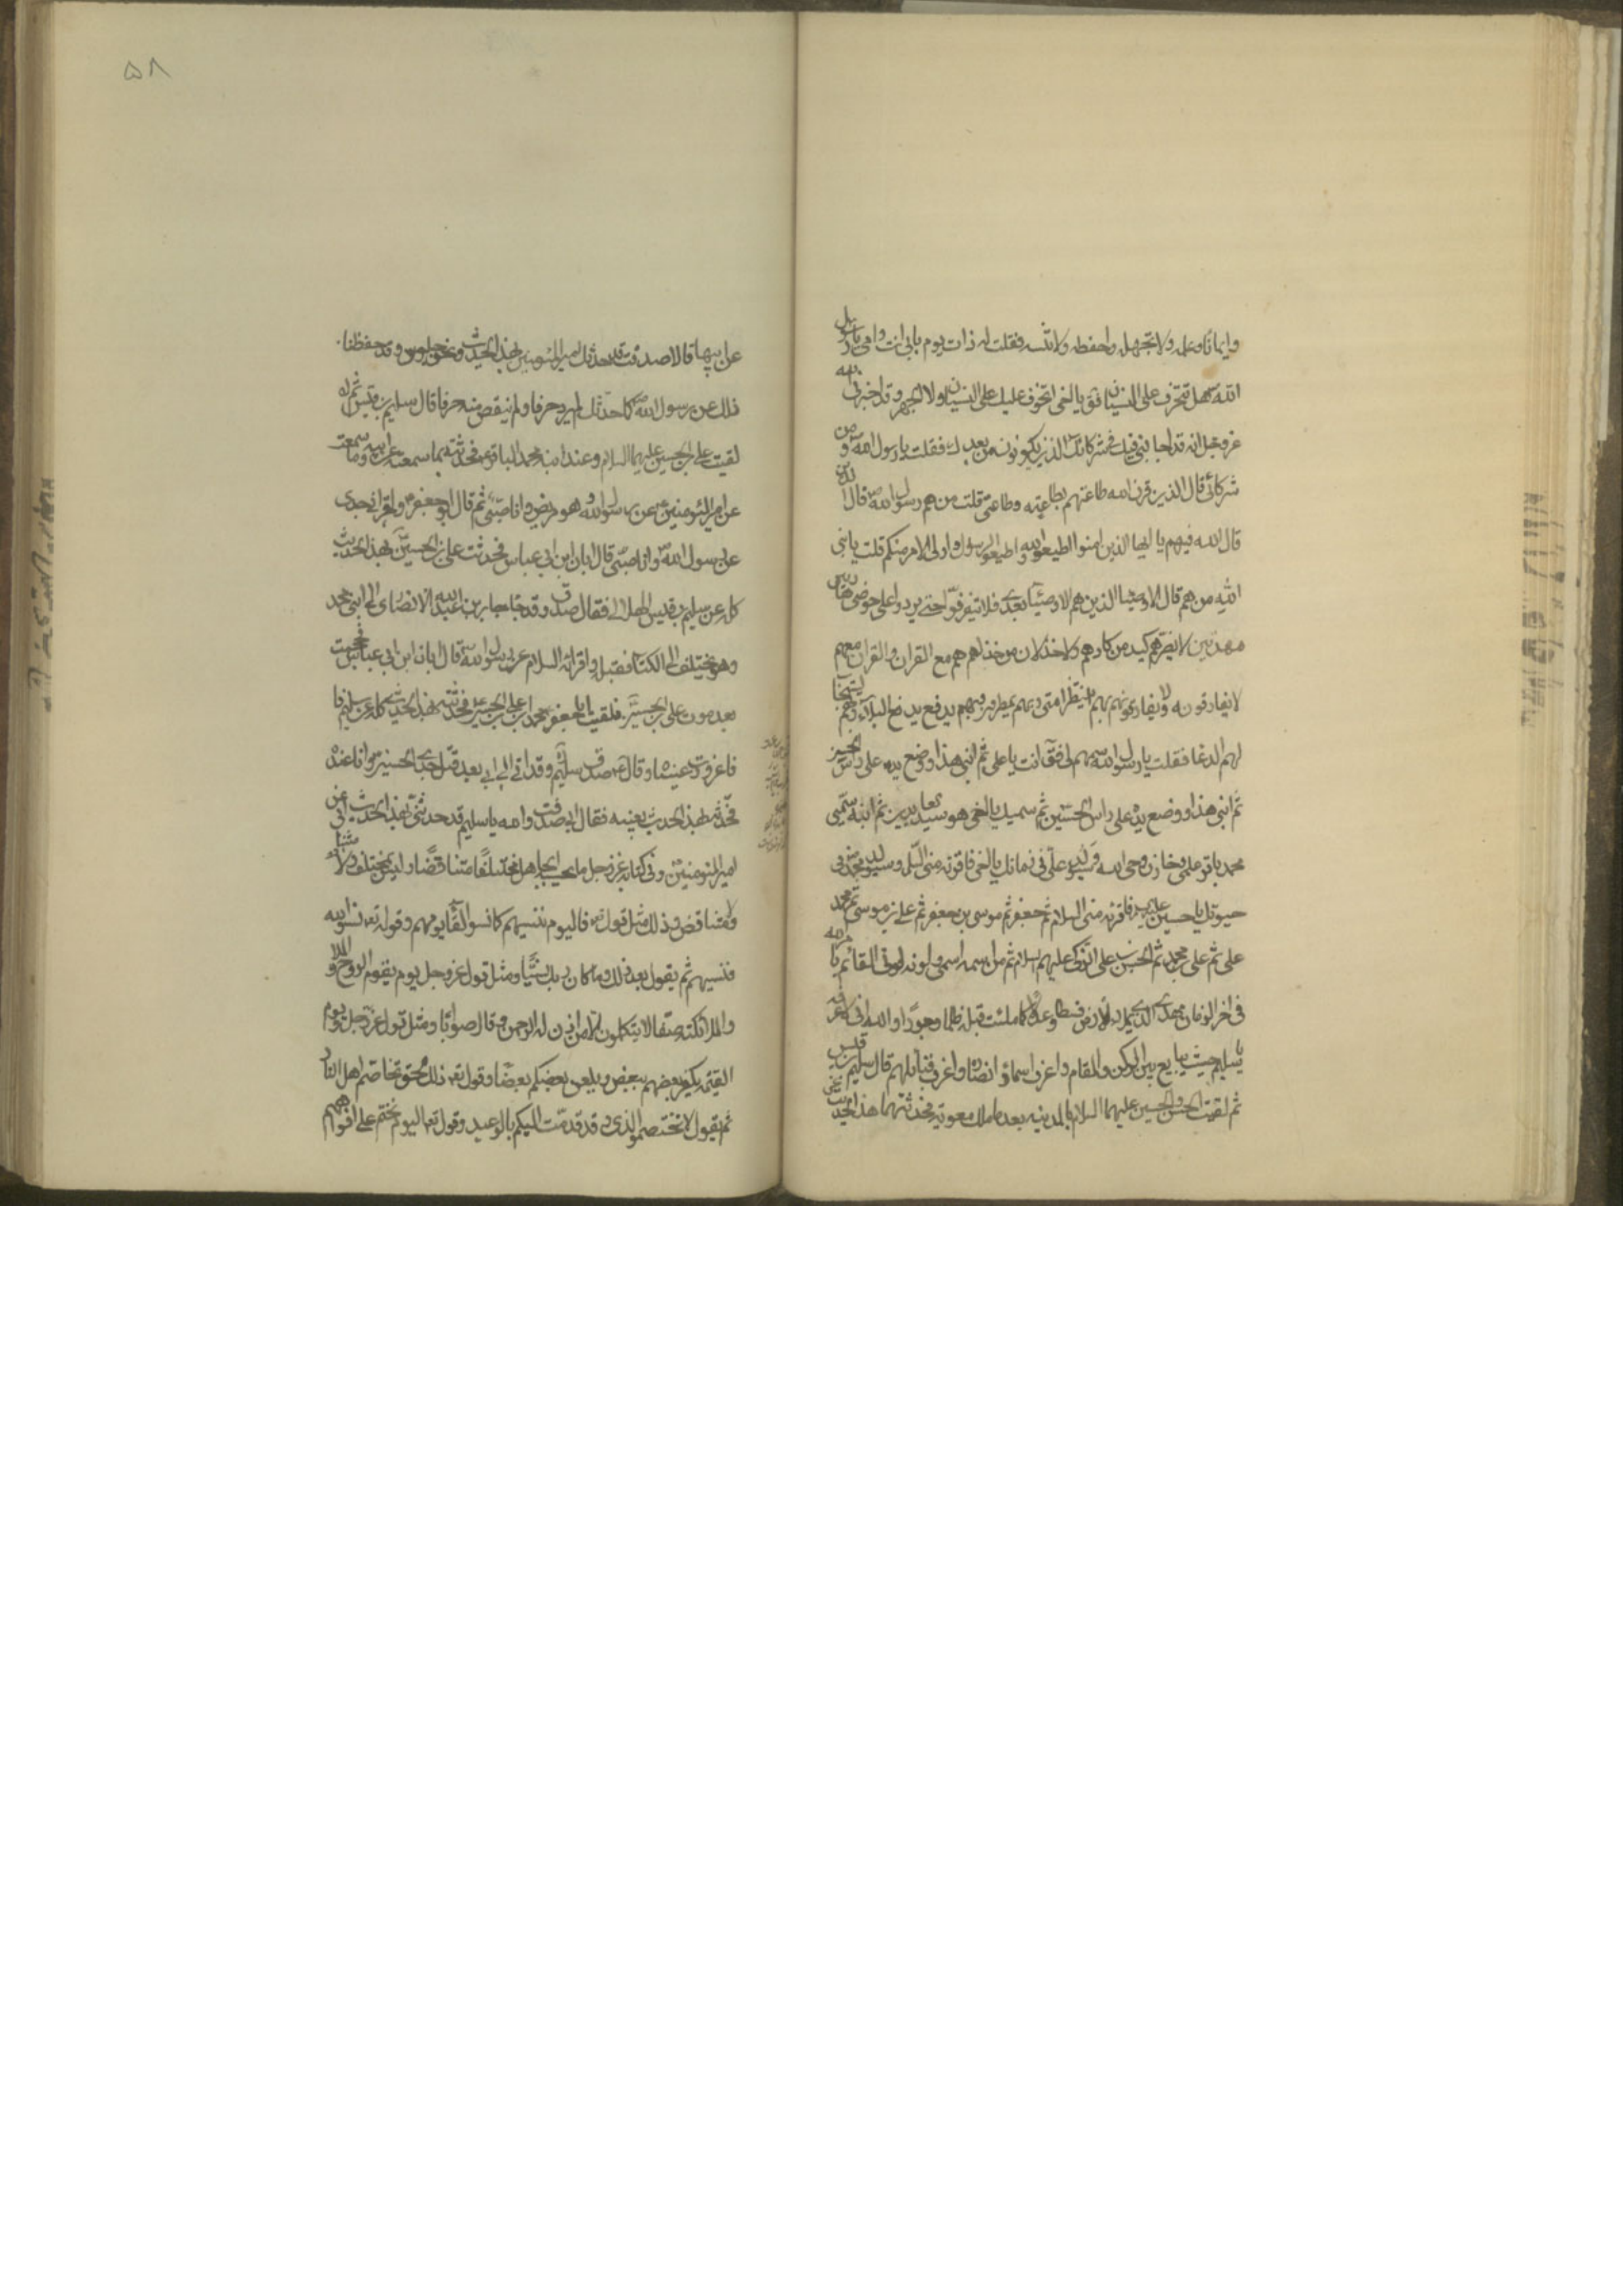 وايمانا وعلمه ولا تجهله واحفظه ولا تنسه فقلت له ذات يوم بابي انت وامي يا رسول
الله هل تتخوف على النسيان فقال يا اخي لا اتخوف عليك على النسيان ولا الجهل وقد اخبرني الله
عز وجل انه قد اجابني فيك وفي شركائك الذين يكونون من بعدك فقلت يا رسول الله ومن
شركائي قال الذين قرن الله طاعتهم بطاعته وطاعتي قلت من هم يا رسول الله قال الذين
قال الله فيهم يا ايها الذين امنوا اطيعوا الله واطيعوا الرسول واولي الامر منكم قلت يا نبي
الله من هم قال الاوصيا الذين هم الاوصيآء بعدي فلا يتفرقوا حتى يردوا على حوضي هادين
مهديين لا يضرهم كيد من كادهم ولا خذلان من خذلهم هم مع القران والقران معهم
لا يفارقونه ولا يفارقهم بهم ينتظر امتي وبهم يمطرون وبهم يدفع البلآء وبهم يستجاب
لهم الدعا فقلت يا رسول الله سمهم لي فقال انت يا علي ثم ابني هذا ووضع يده على راس الحسن
ثم ابني هذا ووضع يده على راس الحسين ثم سميك يا اخي هو سيد العابدين ثم ابنه سميي
محمد باقر علمي وخازن وحي الله وسيولد علي في زمانك يا اخي فاقرئه مني السلام وسيولد محمد في
حيوتك يا حسين فاقرئه مني السلام ثم جعفر ثم موسى بن جعفر ثم علي بن موسى ثم محمد بن
علي ثم علي بن محمد ثم الحسن بن علي الزكي عليهم السلام ثم من اسمه اسمي ولونه لوني القائم بامر الله
في اخر الزمان مهدي الذي يملا الارض قسطا وعدلا كما ملئت قبله ظلما وجورا والله اني لاعرفه
يا سليم حيث يبايع بين الركن والمقام واعرف اسماء انصاره واعرف قبائلهم قال سليم بن قيس
ثم لقيت الحسن والحسين عليهما السلام بالمدينه بعد ما ملك معوية فحدثتهما هذا الحديث
٥٨
عن ابيهما قالا صدقت قد حدثك امير المؤمنين بهذا الحديث ونحن جلوس وقد حفظنا
ذلك عن رسول الله كما حدثك لم يزد حرفا ولم ينقص منه حرفا قال سليم بن قيس ثم
لقيت علي بن الحسين عليهما السلام وعند ابنه محمد الباقر فحدثته بما سمعته من ابيه وما سمعت
عن امير المؤمنين عن رسول الله وهو مريض وانا صبي ثم قال ابو جعفر واقراني جدي
عن رسول الله وانا صبي قال ابان ابن ابي عياش فحدثت علي بن الحسين بهذا الحديث
كله عن سليم بن قيس الهلالي فقال صدق وقد جا جابر بن عبد الله الانصاري الى ابني محمد
وهو يختلف الى الكتاب فقبله واقراه السلام عن رسول الله قال ابان ابن ابي عياش فحججت
بعد موت علي بن الحسين فلقيت ابا جعفر محمد بن علي بن الحسين فحدثته بهذا الحديث كله عن سليم
فاغرورقت عيناه وقال صدق سليم وقد اتى الى ابي بعد قتل جدي الحسين وانا عنده
فحدثه بهذا الحديث بعينه فقال ابي صدقت والله يا سليم قد حدثني بهذا الحديث ابي عن
امير المؤمنين وفي كتابه عز وجل ما يحسب الجاهل مختلفا متناقضا وليس بمختلف ولا
متناقض وذلك مثل قوله فاليوم ننسيهم كما نسوا لقآء يومهم وقوله نسوا الله
فنسيهم ثم يقول بعد ذلك وما كان ربك نسيا ومثل قوله عز وجل يوم يقوم الروح
والملائكة صفا لا يتكلمون الا من اذن له الرحمن وقال صوابا ومثل قوله عز وجل ويوم
القيمة يكفر بعضهم ببعض ويلعن بعضكم بعضا وقوله ان ذلك لحق تخاصم اهل النار
ثم يقول لا تختصموا لدي وقد قدمت اليكم بالوعيد وقوله تعالى اليوم نختم على افواههم